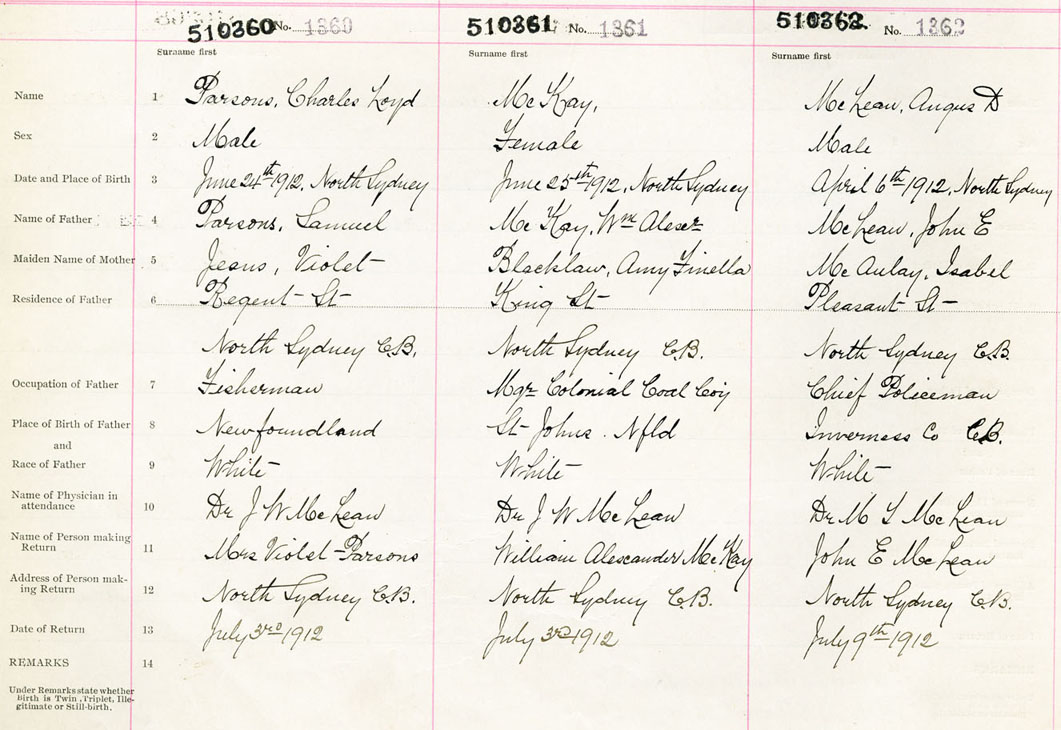 510360 No. 1360 510361 No. 1361 510362 No. 1362
Surname first Surname first Surname first
Name 1 Parsons, Charles Loyd Mc Kay, Mc Lean, Angus D
Sex 2 Male Female Male
Date and Place of Birth 3 June 24th 1912, North Sydney June 25th 1912, North Sydney April 6th 1912, North Sydney
Name of Father 4 Parsons, Samuel Mc Kay, Wm Alexr McLean, John E
Maiden Name of Mother 5 Jeans, Violet Blacklaw, Amy Finella Mc Aulay, Isabel
Residence of Father 6 Regent St King St Pleasant St
North Sydney C.B. North Sydney C.B. North Sydney C.B.
Occupation of Father 7 Fisherman Mgr Colonial Coal Coy Chief Policeman
Place of Birth of Father 8 Newfoundland St Johns. Nfld Inverness Co C.B.
and
Race of Father 9 White White White
Name of Physician in
attendance 10 Dr J W Mc Lean Dr J W Mc Lean Dr M Mc Lean
Name of Person making
Return 11 Mrs Violet Parsons William Alexander McKay John E Mc Lean
Address of Person mak-
ing Return 12 North Sydney C.B. North Sydney C.B. North Sydney C.B.
Date of Return 13 July 3rd 1912 July 3rd 1912 July 9th 1912
REMARKS 14
Under Remarks state whether
birth is Twin, Triplet, Ille-
gitimate or Still-birth.